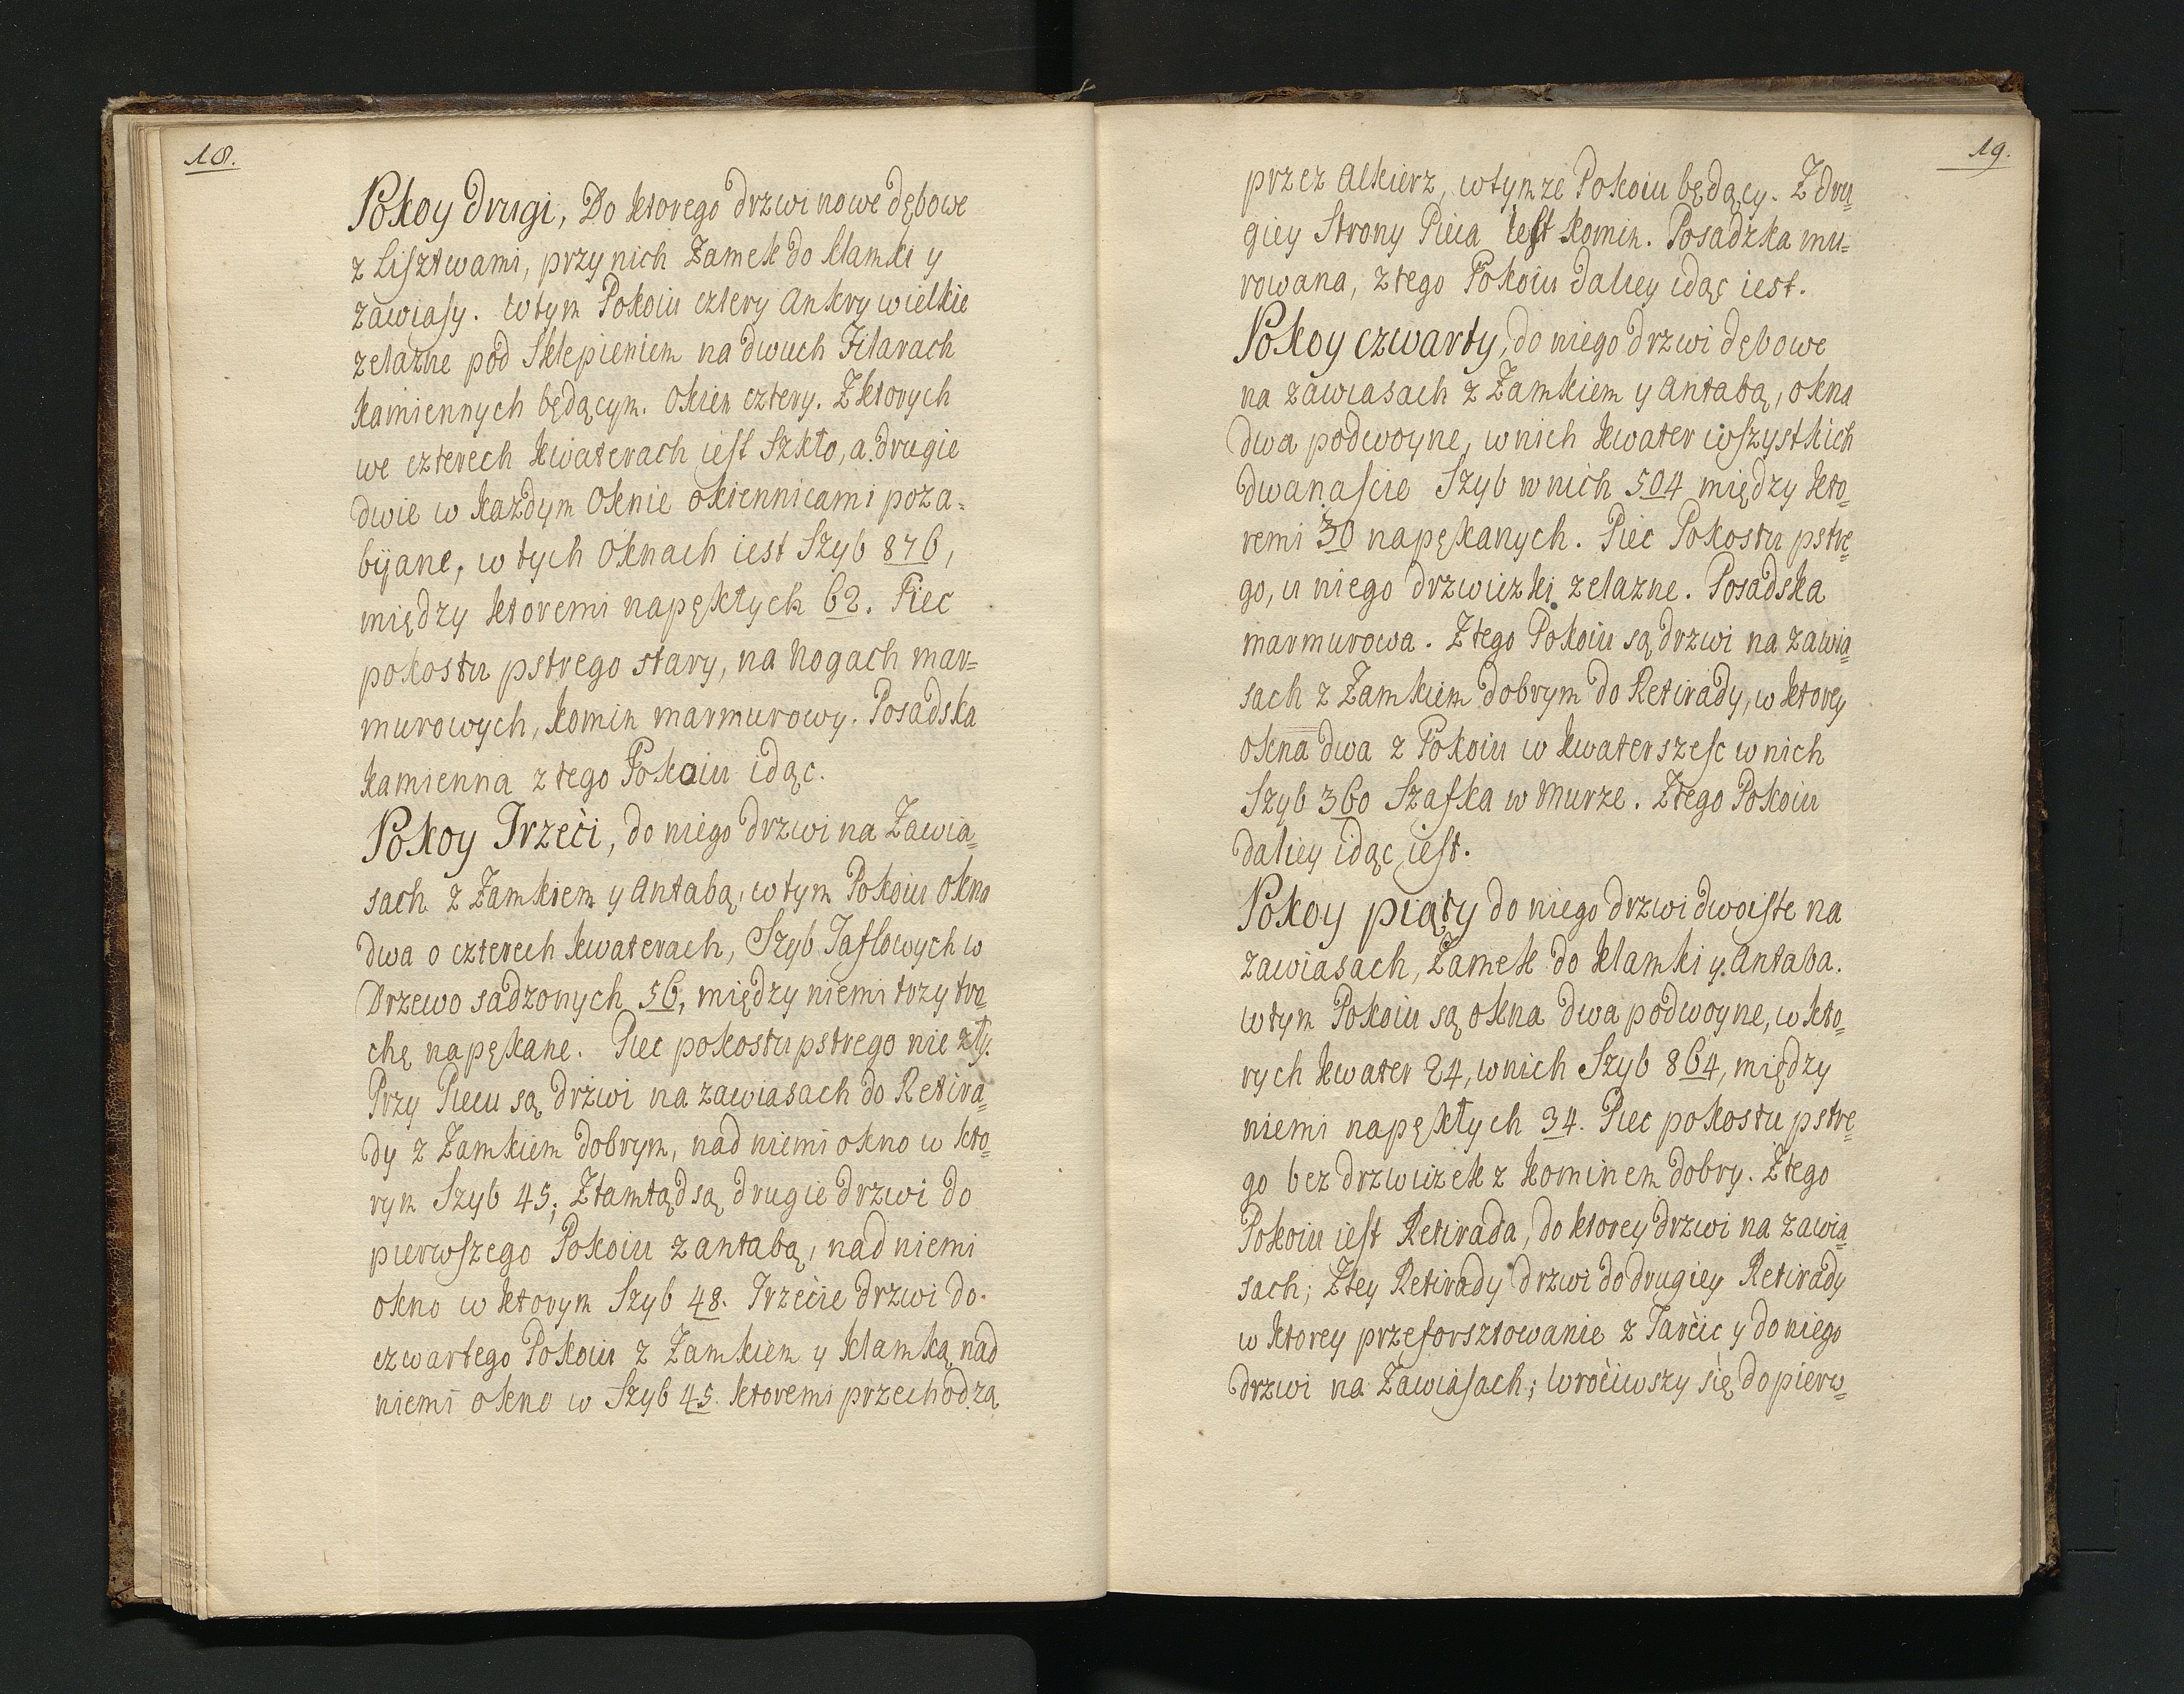 18.
Pokoy drugi, Do ktorego drzwi nowe dębowe
z Lisztwami, przy nich Zamek do klamki y
zawiasy. w tym Pokoiu cztery Ankry wielkie
zelazne pod Sklepieniem na dwuch Filarach
kamiennych będącym. Okien cztery. Z ktorych
we czterech kwaterach iest Szkło, a drugie
dwie w każdym Oknie okiennicami poza-
bijane, w tych Oknach iest Szyb 876,
między ktoremi napękłych 62. Piec
pokostu pstrego stary, na Nogach mar=
murowych, komin marmurowy. Posadska
kamienna z tego Pokoiu idąc.
Pokoy Trzeci, do niego drzwi na Zawia=
sach z Zamkiem y Antabą, w tym Pokoiu Okna
dwa o czterech kwaterach, Szyb Taflowych w
Drzewo sadzonych 56, między niemi trzy tro=
chę napękane. Piec pokostu pstrego nie zły.
Przy Piecu są drzwi na zawiasach do Retira=
dy z Zamkiem dobrym, nad niemi okno w kto=
rym Szyb 45; Ztamtąd są drugie drzwi do
pierwszego Pokoiu z antabą, nad niemi
okno w ktorym Szyb 48. Trzecie drzwi do
czwartego Pokoiu z Zamkiem y klamką, nad
niemi okno w Szyb 45. ktoremi przechodzą
19.
przez Alkierz, w tymze Pokoiu będący. Z dru=
giey Strony Pieca iest komin. Posadzka mu=
rowana, z tego Pokoiu daliey idąc iest.
Pokoy czwarty, do niego drzwi dębowe
na zawiasach z Zamkiem y antabą, okna
dwa podwoyne, w nich kwater wszystkich
dwanascie Szyb w nich 504 między kto=
remi 30 napękanych. Piec Pokostu pstre=
go, u niego drzwiczki zelazne. Posadska
marmurowa. Z tego Pokoiu są drzwi na zawia=
sach z Zamkiem dobrym do Retirady, w ktorey
okna dwa z Pokoiu w kwater szesc w nich
Szyb 360 Szafka w Murze. Z tego Pokoiu
daliey idąc iest.
Pokoy piąty do niego drzwi dwoiste na
zawiasach, Zamek do klamki y Antaba.
w tym Pokoiu są okna dwa podwoyne, w kto=
rych kwater 24, w nich Szyb 864, między
niemi napękłych 34. Piec pokostu pstre=
go bez drzwiczek z kominem dobry. Z tego
Pokoiu iest Retirada, do ktorey drzwi na zawia=
sach; Z tey Retirady drzwi do drugiey Retirady
w ktorey przeforsztowanie z Tarcic y do niego
drzwi na Zawiasach; wrociwszy się do pierw=